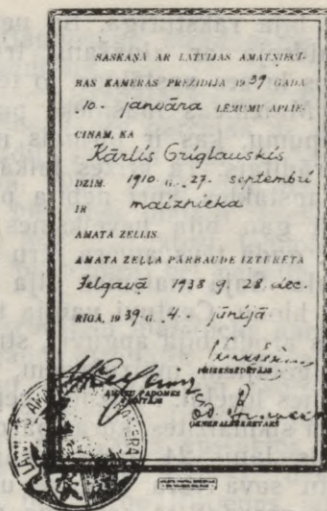 SASKAŅĀ AR LATVIJAS AMATNIECĪ-
BAS KAMERAS PREZIDIJA 1939 GADA
10. janvāra LĒMUMU APLIE-
CINAM, KA
Kārlis Griglauskis
DZIM. 1910. G. 27. septembrī
IR maiznieka
AMATA ZELLIS.
AMATA ZEĻĻA PĀRBAUDE IZTURĒTA
Jelgavā 1938 g. 28. dec.
RĪGĀ, 1939. G. 4. jūnijā
PRIEKŠSĒDĒTĀJS
AMATU PADOMES
ĢENERĀLSEKRETĀRS